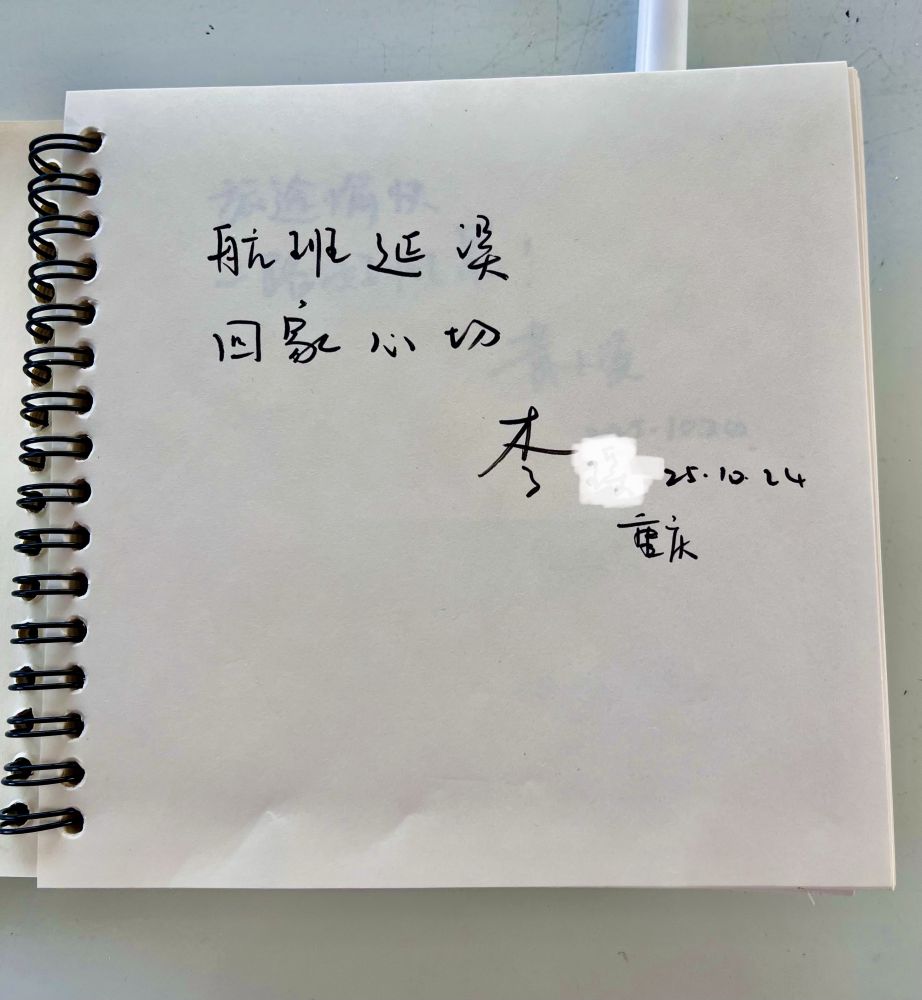 航班延误
回家心切
李
25.10.24
重庆
旅途愉快